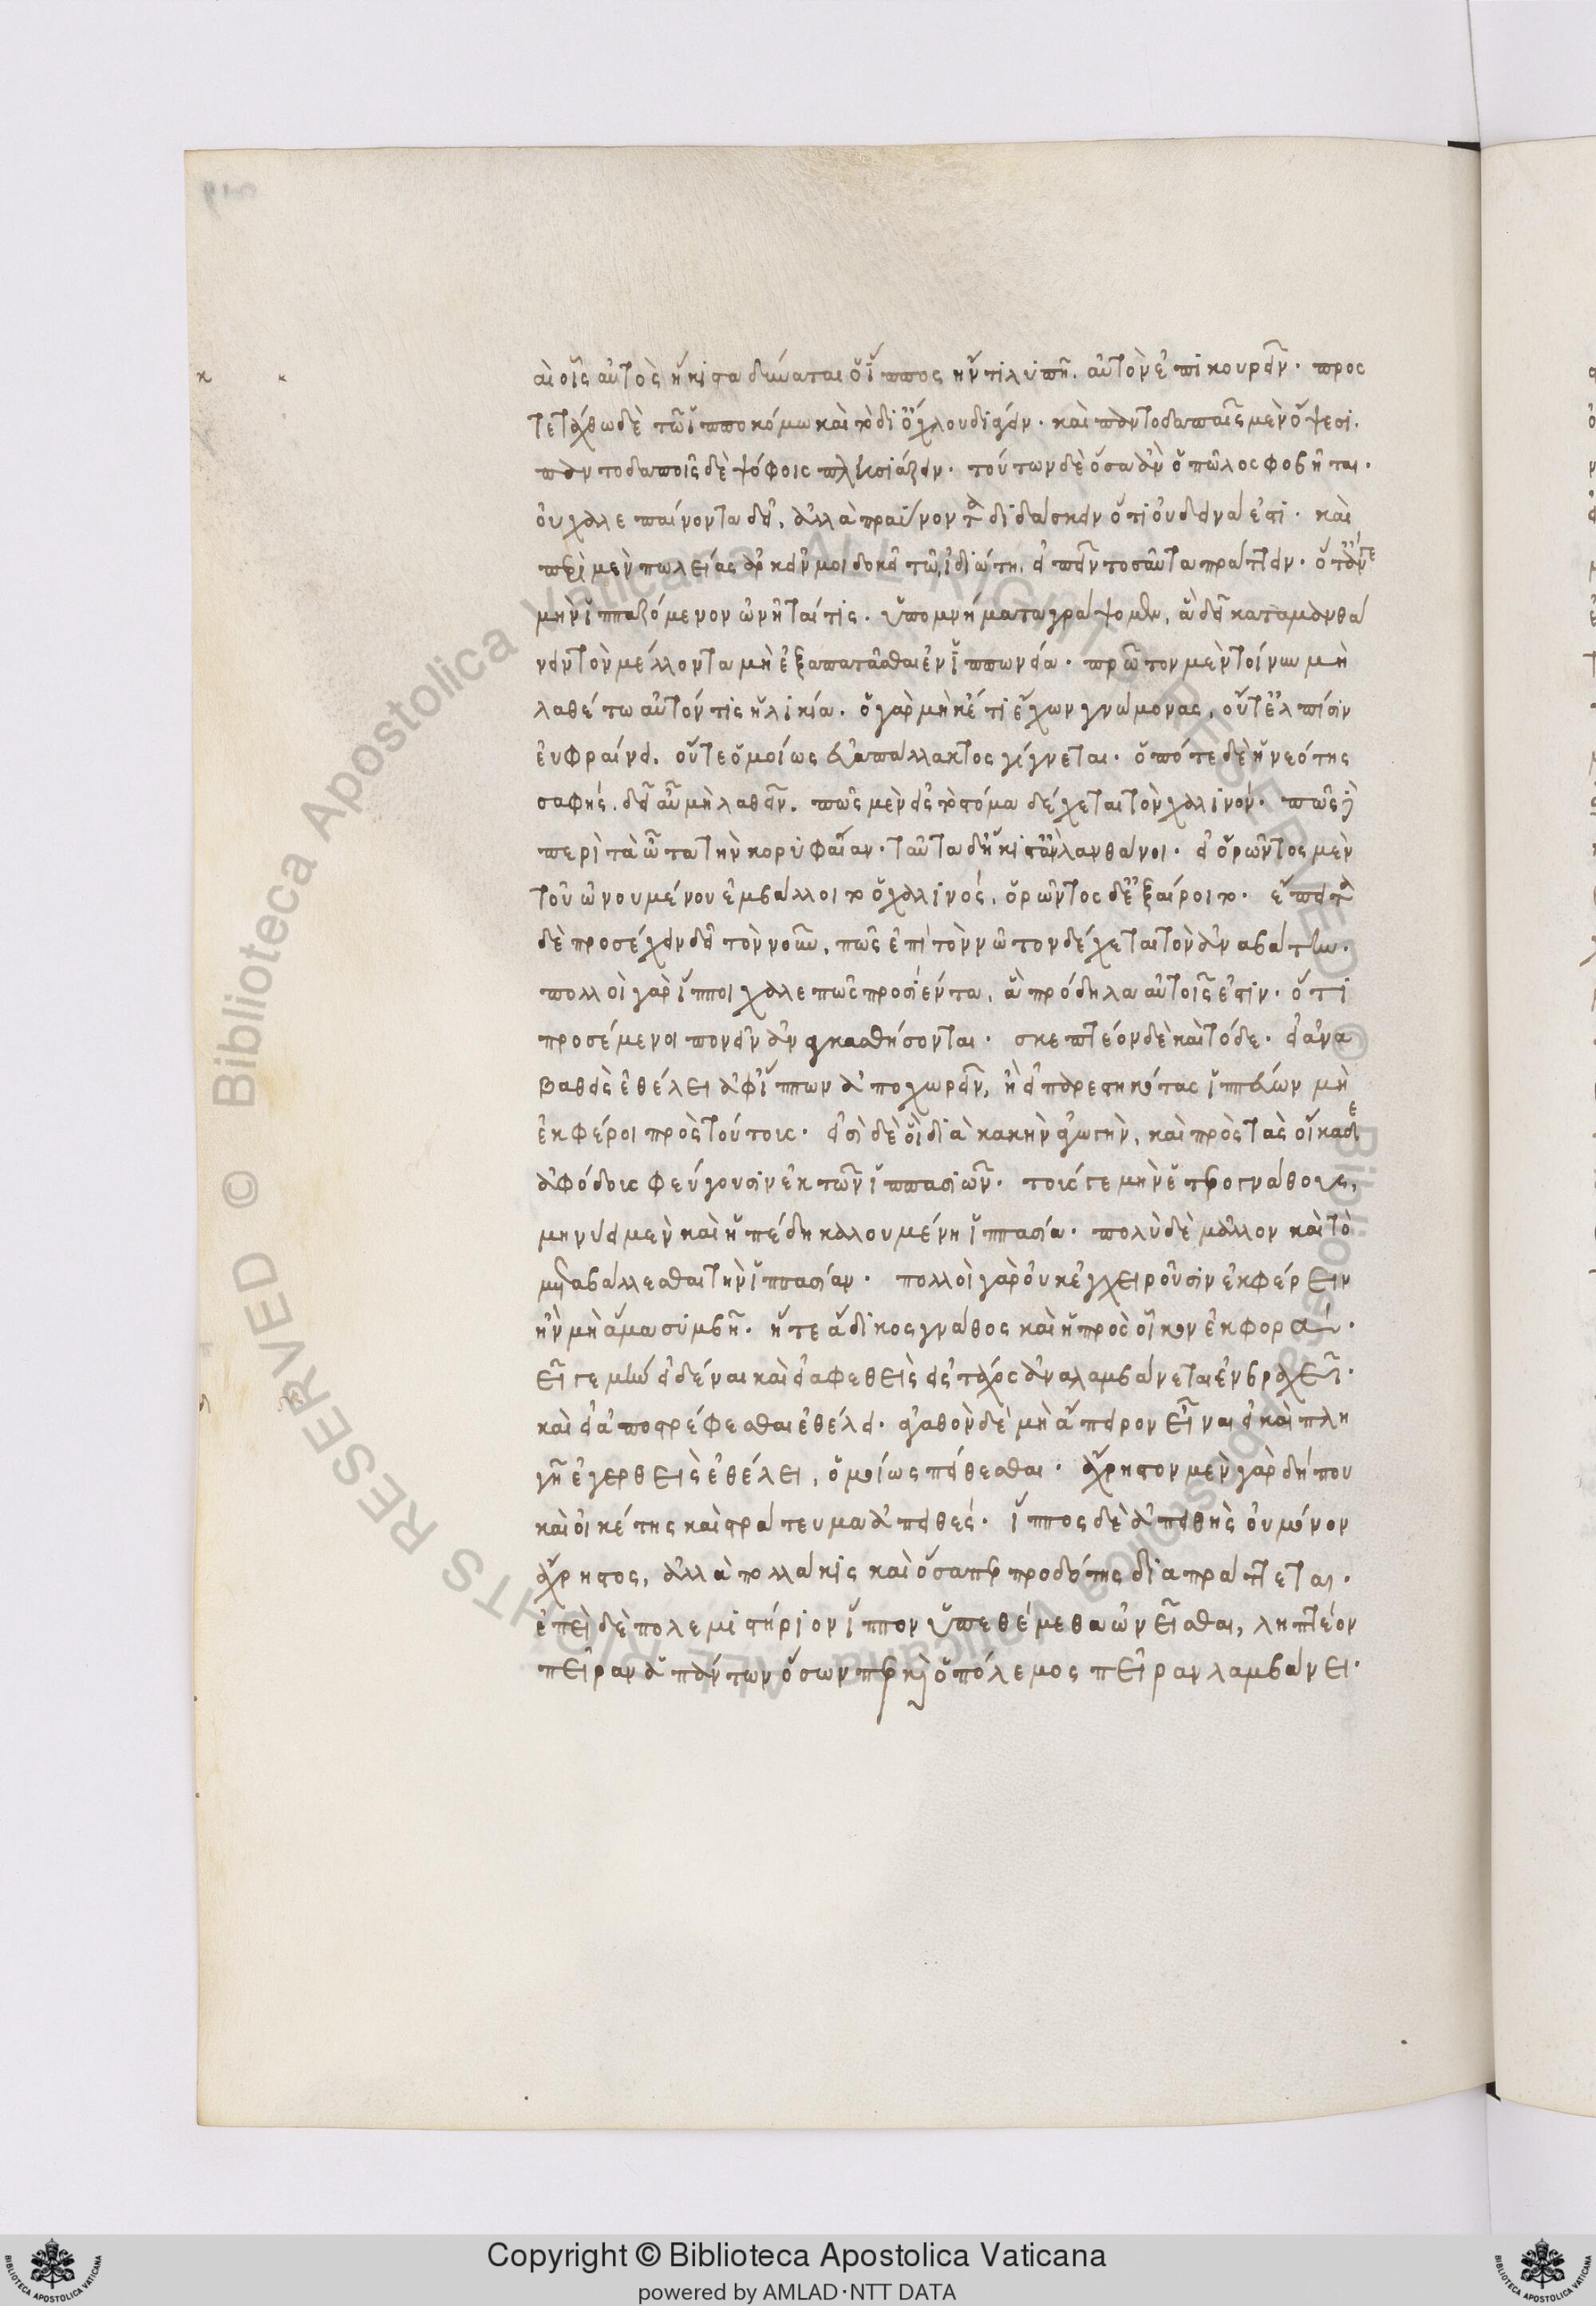 αὶ οἷς αὐτὸς ἥκιστα δύναται ὁ ἵππος ἤν τι λυπῆ. αὐτὸν ἐπικουρεῖν· προς
τετάχθω δὲ τῶ ἱπποκόμω καὶ τὸ δι ὄχλου διάγειν· καὶ παντοδαπαῖς μὲν ὄψεσι.
παντοδαποῖς δὲ ψόφοις πλησιάζειν· τούτων δὲ ὅσα ἂν ὁ πῶλος φοβῆται·
οὐ χαλεπαίνοντα δεῖ, ἀλλὰ πραΰνοντα διδάσκειν ὅτι οὐ δεινά ἐστι· καὶ
περὶ μὲν πωλείας ἀρκεῖν μοι δοκεῖ τῶ ἰδιώτη. εἰπεῖν τοσαῦτα πράττειν· ὅταν γε
μὴν ἱππαζόμενον ὠνῆταί τις. ὑπομνήματα γράψομεν, ἃ δεῖ καταμανθά
νειν τὸν μέλλοντα μὴ ἐξαπατᾶσθαι ἐν ἱππωνεία· πρῶτον μὲν τοίνυν μὴ
λαθέτω αὐτόν τίς ἡλικία· ὁ γὰρ μηκέτι ἔχων γνώμονας, οὔτ ἐλπίσιν
εὐφραίνει. οὔτε ὁμοίως εὐαπάλλακτος γίγνεται· ὁπότε δὲ ἡ νεότης
σαφής. δεῖ αὖ μὴ λαθεῖν. πῶς μὲν εἰς τὸ στόμα δέχεται τὸν χαλινόν· πῶς δὲ
περὶ τὰ ὦτα τὴν κορυφαίαν· ταῦτα δ ἥκιστ ἂν λανθάνοι· εἰ ὁρῶντος μὲν
τοῦ ὠνουμένου ἐμβάλλοιτο ὁ χαλινός, ὁρῶντος δ ἐξαίροιτο· ἔπειτα
δὲ προσέχειν δεῖ τὸν νοῦν, πῶς ἐπὶ τὸν νῶτον δέχεται τὸν ἀναβάτην·
πολλοὶ γὰρ ἵπποι χαλεπῶς προσίενται, ἃ πρόδηλα αὐτοῖς ἐστιν· ὅτι
προσέμενοι πονεῖν ἀναγκασθήσονται· σκεπτέον δὲ καὶ τόδε· εἰ ἀνα
βαθεὶς ἐθέλει ἀφ ἵππων ἀποχωρεῖν, ἢ εἰ παρεστηκότας ἱππέων μὴ
ἐκφέροι πρὸς τούτοις· εἰσὶ δὲ οἳ διὰ κακὴν ἀγωγὴν, καὶ πρὸς τὰς οἴκαδε
ἀφόδοις φεύγουσιν ἐκ τῶν ἱππασιῶν· τούς γε μὴν ἑτερογνάθους,
μηνύει μὲν καὶ ἡ πέδη καλουμένη ἱππασία· πολὺ δὲ μᾶλλον καὶ τὸ
μεταβάλλεσθαι τὴν ἱππασίαν· πολλοὶ γὰρ οὐκ ἐγχειροῦσιν ἐκφέρειν
ἢν μὴ ἅμα συμβῆ· ἥ τε ἄδικος γνάθος καὶ ἡ πρὸς οἶκον ἐκφορά·
εἴ γε μὴν εἰδέναι καὶ εἰ ἀφεθεὶς εἰς τάχος ἀναλαμβάνεται ἐν βραχεῖ·
καὶ εἰ ἀποστρέφεσθαι ἐθέλει· ἀγαθὸν δὲ μὴ ἄπειρον εἶναι εἰ καὶ πλη
γῆ ἐγερθεὶς ἐθέλει, ὁμοίως πείθεσθαι· ἄχρηστον μὲν γὰρ δήπου
καὶ οἰκέτης καὶ στράτευμα ἀπειθές· ἵππος δὲ ἀπειθὴς οὐ μόνον
ἄχρηστος, ἀλλὰ πολλάκις καὶ ὅσαπερ προδότης διαπράττεται·
ἐπεὶ δὲ πολεμιστήριον ἵππον ὑπεθέμεθα ὠνεῖσθαι, ληπτέον
πεῖραν ἁπάντων ὅσωνπερ καὶ ὁ πόλεμος πεῖραν λαμβάνει·
Copyright © Biblioteca Apostolica Vaticana
powered by AMLAD·NTT DATA